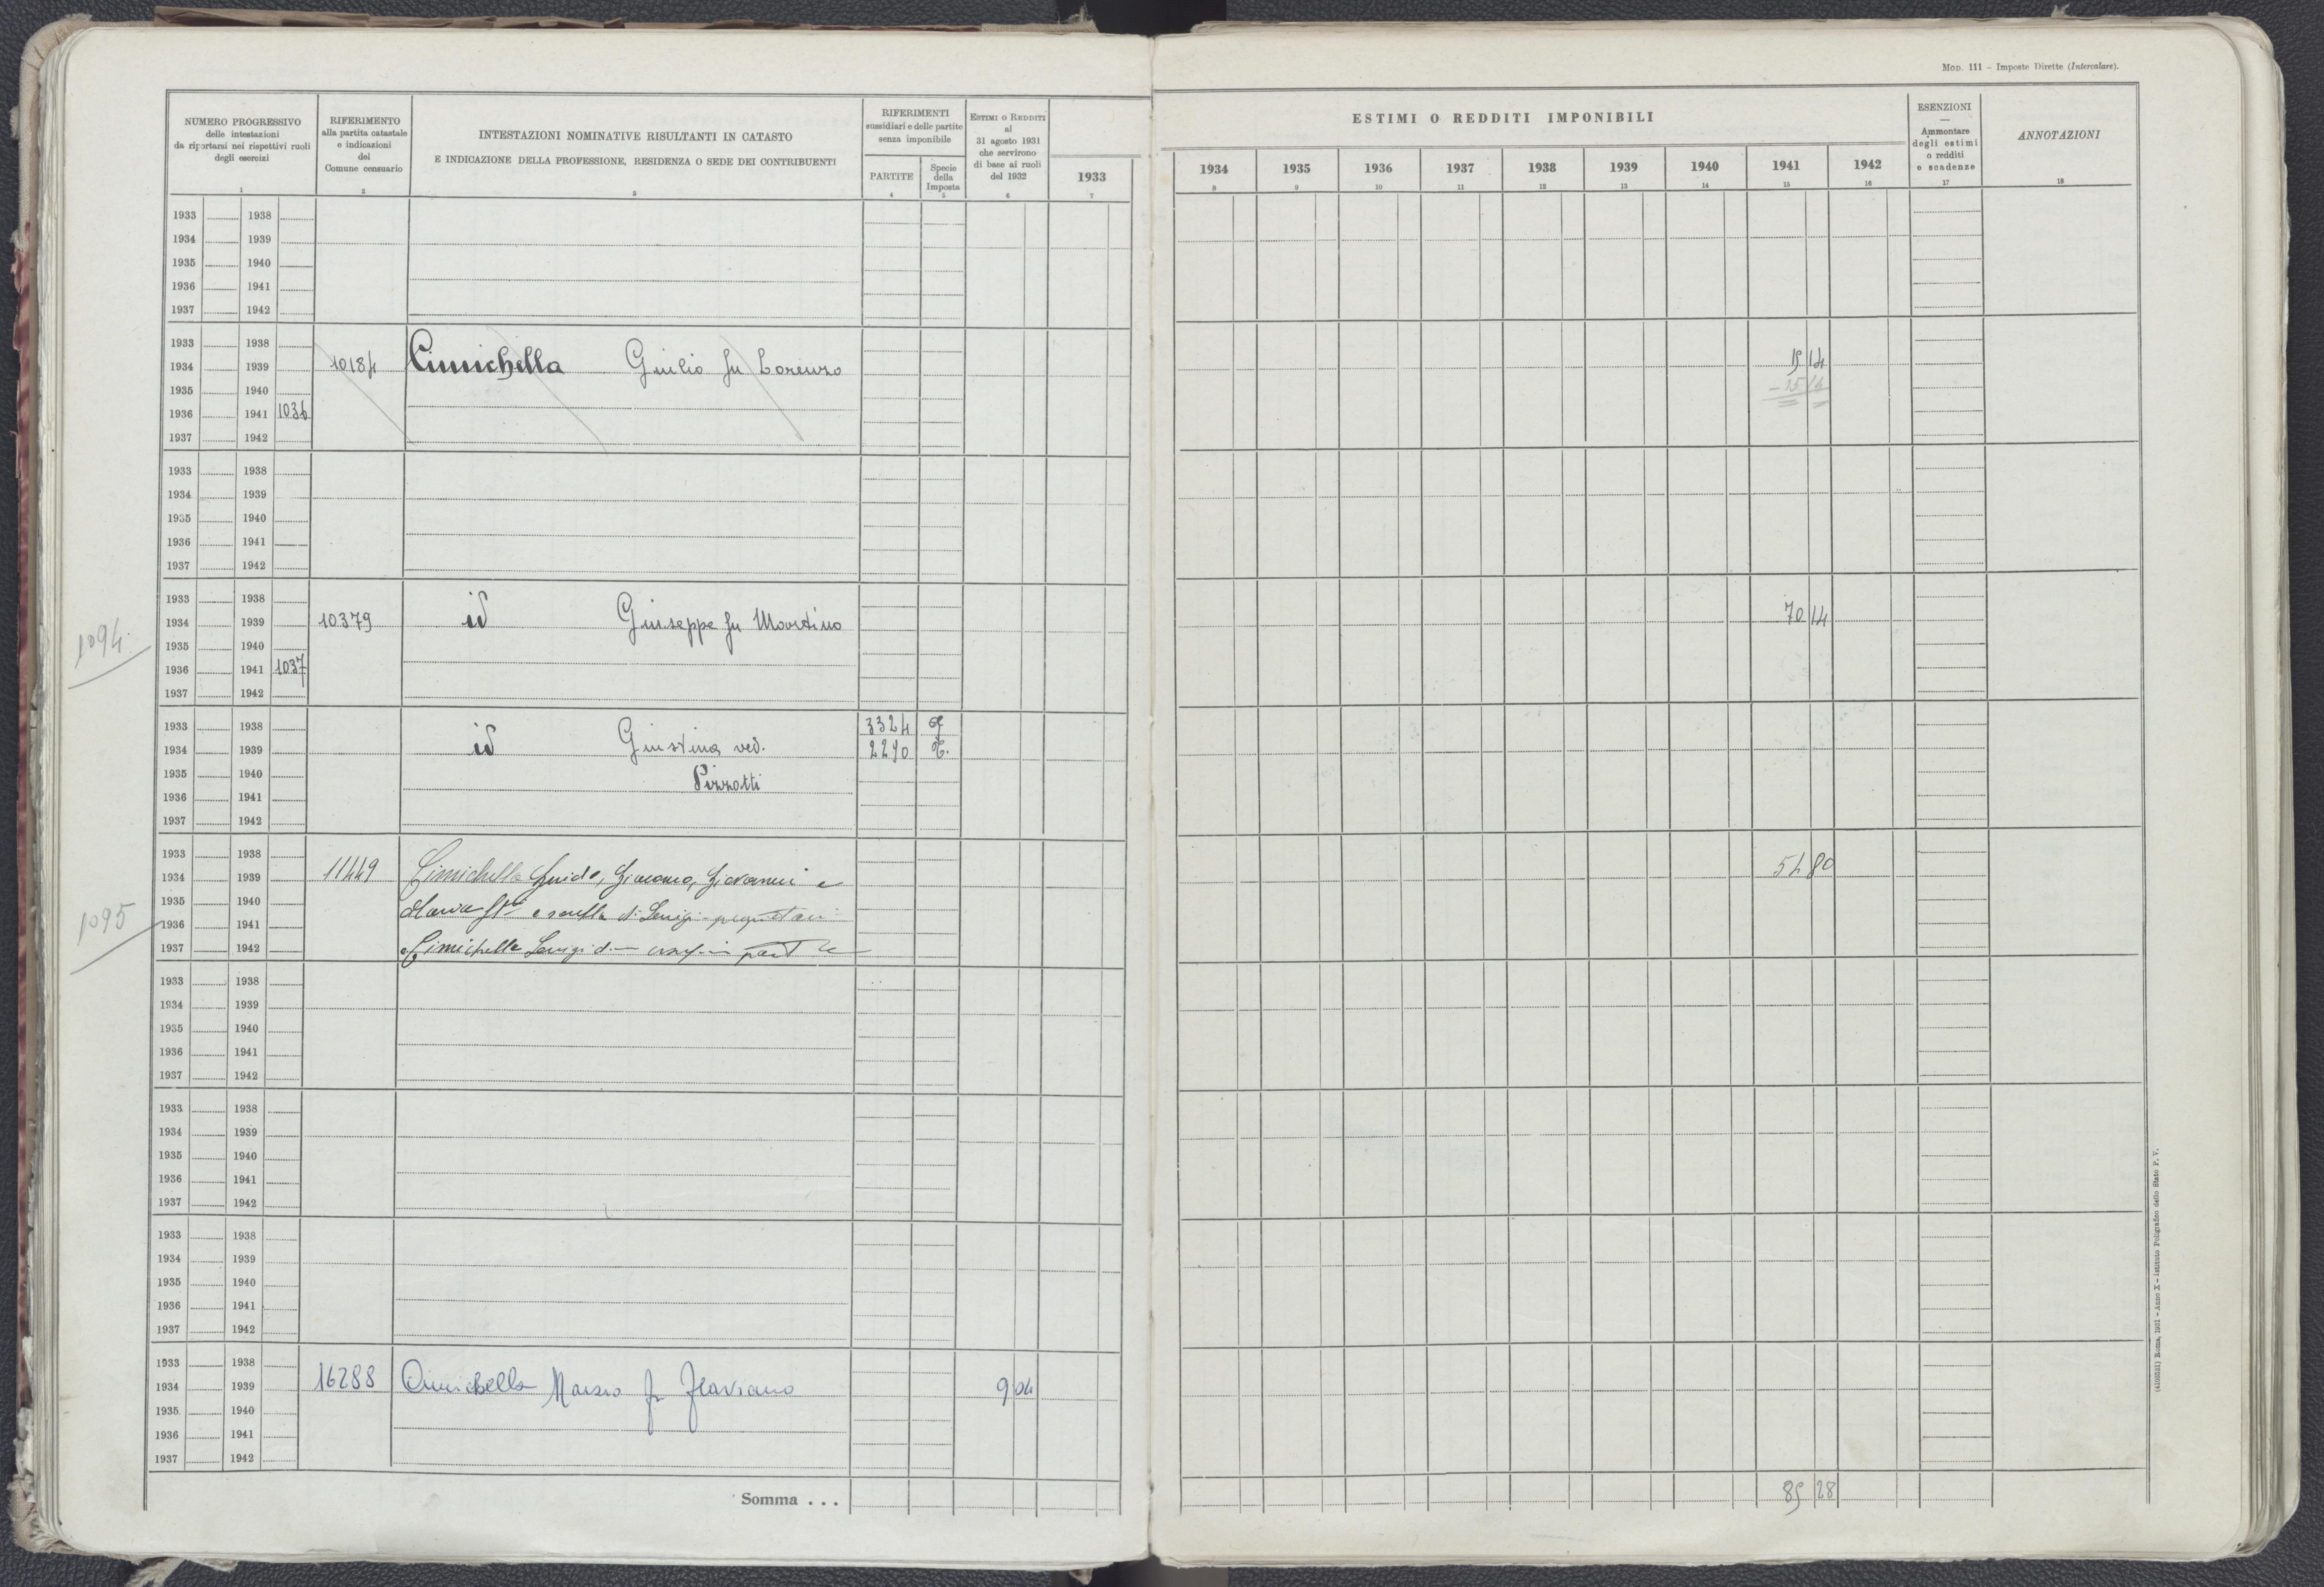 Mod. 111 – Imposte Dirette (Intercalare).
NUMERO PROGRESSIVO
delle intestazioni
da riportarsi nei rispettivi ruoli
degli esercizi
1
RIFERIMENTO
alla partita catastale
e indicazioni
del
Comune censuario
2
INTESTAZIONI NOMINATIVE RISULTANTI IN CATASTO
E INDICAZIONE DELLA PROFESSIONE, RESIDENZA O SEDE DEI CONTRIBUENTI
3
RIFERIMENTI
sussidiari e delle partite
senza imponibile
PARTITE
4
Specie
della
Imposta
5
ESTIMI O REDDITI
al
31 agosto 1931
che servirono
di base ai ruoli
del 1932
6
1933
7
ESTIMI O REDDITI IMPONIBILI
1934 1935 1936 1937 1938 1939 1940 1941 1942
8 9 10 11 12 13 14 15 16
ESENZIONI
—
Ammontare
degli estimi
o redditi
e scadenze
17
ANNOTAZIONI
18
1933 1938
1934 1939
1935 1940
1936 1941
1937 1942
1933 1938
1934 1939 10184 Cimichella Giulio fu Lorenzo 15 14
1935 1940 15 14
1936 1941 1036
1937 1942
1933 1938
1934 1939
1935 1940
1936 1941
1937 1942
1933 1938
1934 1939 10379 id Giuseppe fu Martino 70 14
1094
1935 1940
1936 1941 1037
1937 1942
1933 1938 3324
1934 1939 id Giustina ved. 2290
1935 1940 Pizzotti
1936 1941
1937 1942
1933 1938
1934 1939 11449 Cimichella Guido, Giacomo, Giovanni e 54 80
1935 1940 Maria di Luigi proprietari
1095
1936 1941
1937 1942 Cimichella Luigi
1933 1938
1934 1939
1935 1940
1936 1941
1937 1942
1933 1938
1934 1939
1935 1940
1936 1941
1937 1942
1933 1938
1934 1939
1935 1940
1936 1941
1937 1942
1933 1938
1934 1939 16288 Cimichella Marzio fu Flaviano 9 04
1935 1940
1936 1941
1937 1942
Somma . . . 85 28
(4109251) Roma, 1931 - Anno X - Istituto Poligrafico dello Stato P. V.